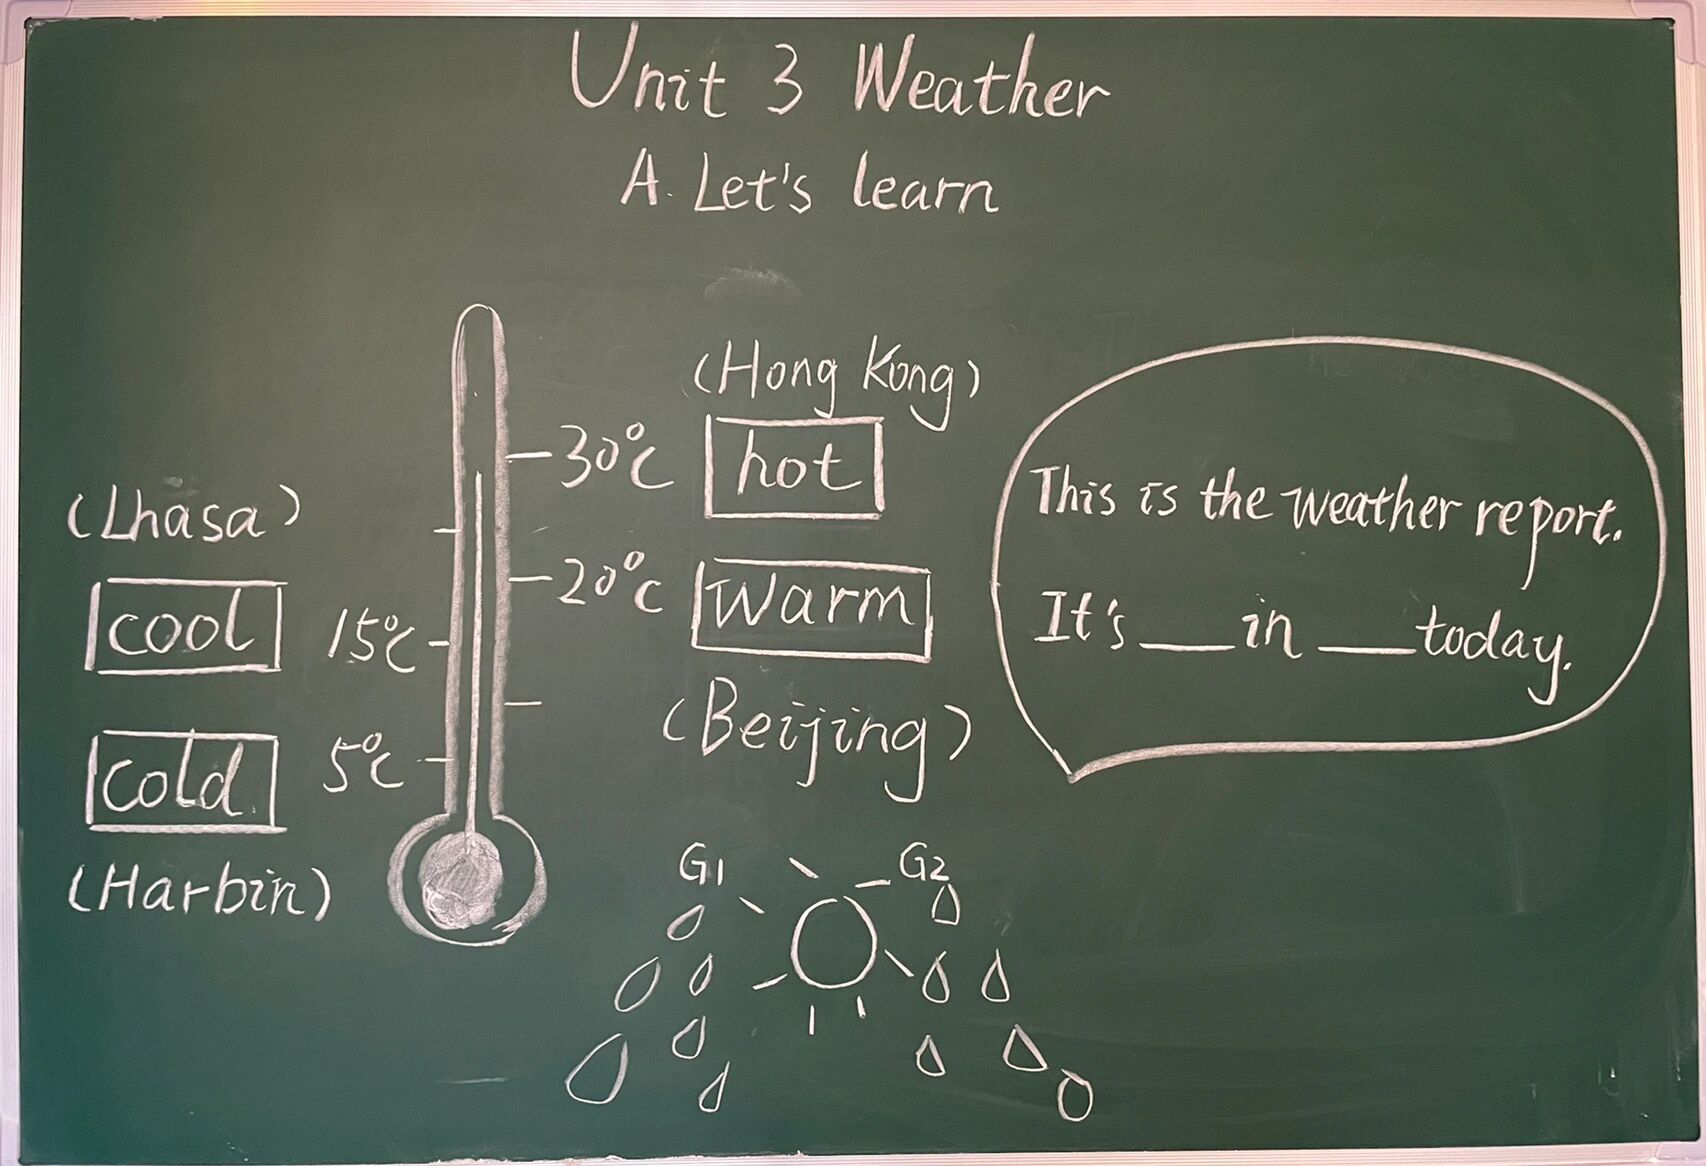 Unit 3 Weather
A. Let's learn
(Lhasa)
cool 15°C
cold 5°C
(Harbin)
(Hong Kong)
30°C hot
20°C warm
(Beijing)
This is the weather report.
It's ___ in ___ today.
G1 G2